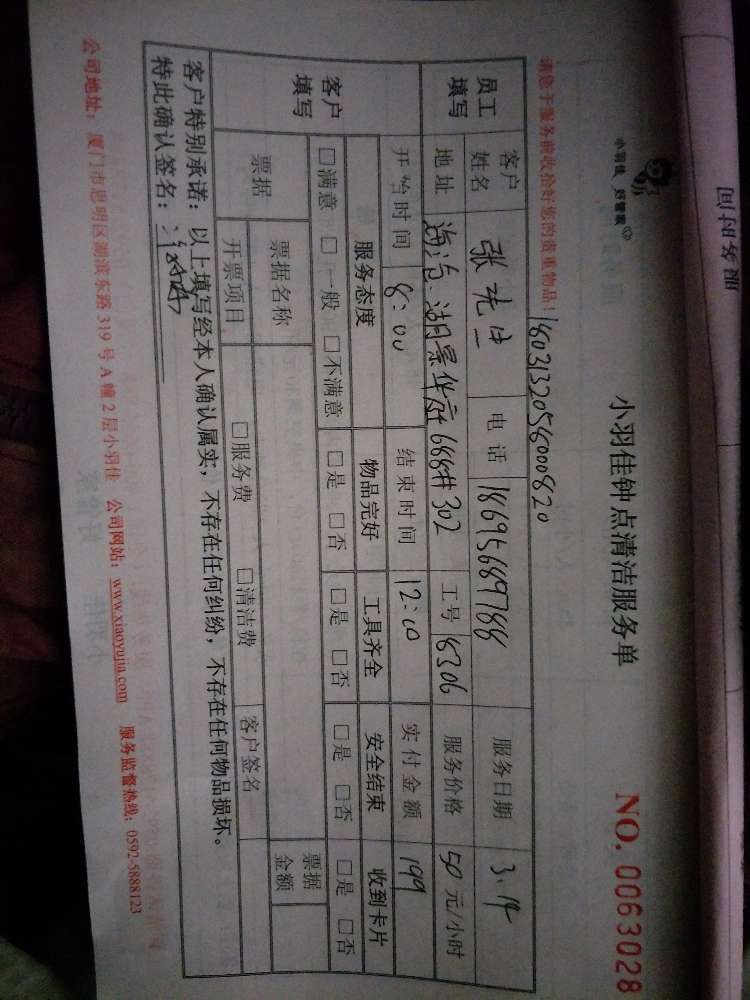 小羽佳 好管家
小羽佳钟点清洁服务单
NO. 0063028
请您于服务前收拾好您的贵重物品！ 180313205800820
员工填写 客户姓名 张先生 电话 18695689788 服务日期 3.14
地址 海沧.湖景华府688#302 工号 8306 服务价格 50 元/小时
开始时间 8:00 结束时间 12:00 实付金额 199
客户填写 服务态度 物品完好 工具齐全 安全结束 收到卡片
□满意 □一般 □不满意 □是 □否 □是 □否 □是 □否 □是 □否
票据 票据名称 票据金额
开票项目 □服务费 □清洁费 客户签名
客户特别承诺：以上填写经本人确认属实，不存在任何纠纷，不存在任何物品损坏。
特此确认签名：
公司地址：厦门市思明区湖滨东路319号A幢2层小羽佳 公司网站：www.xiaoyujia.com 服务监督热线：0592-5888123